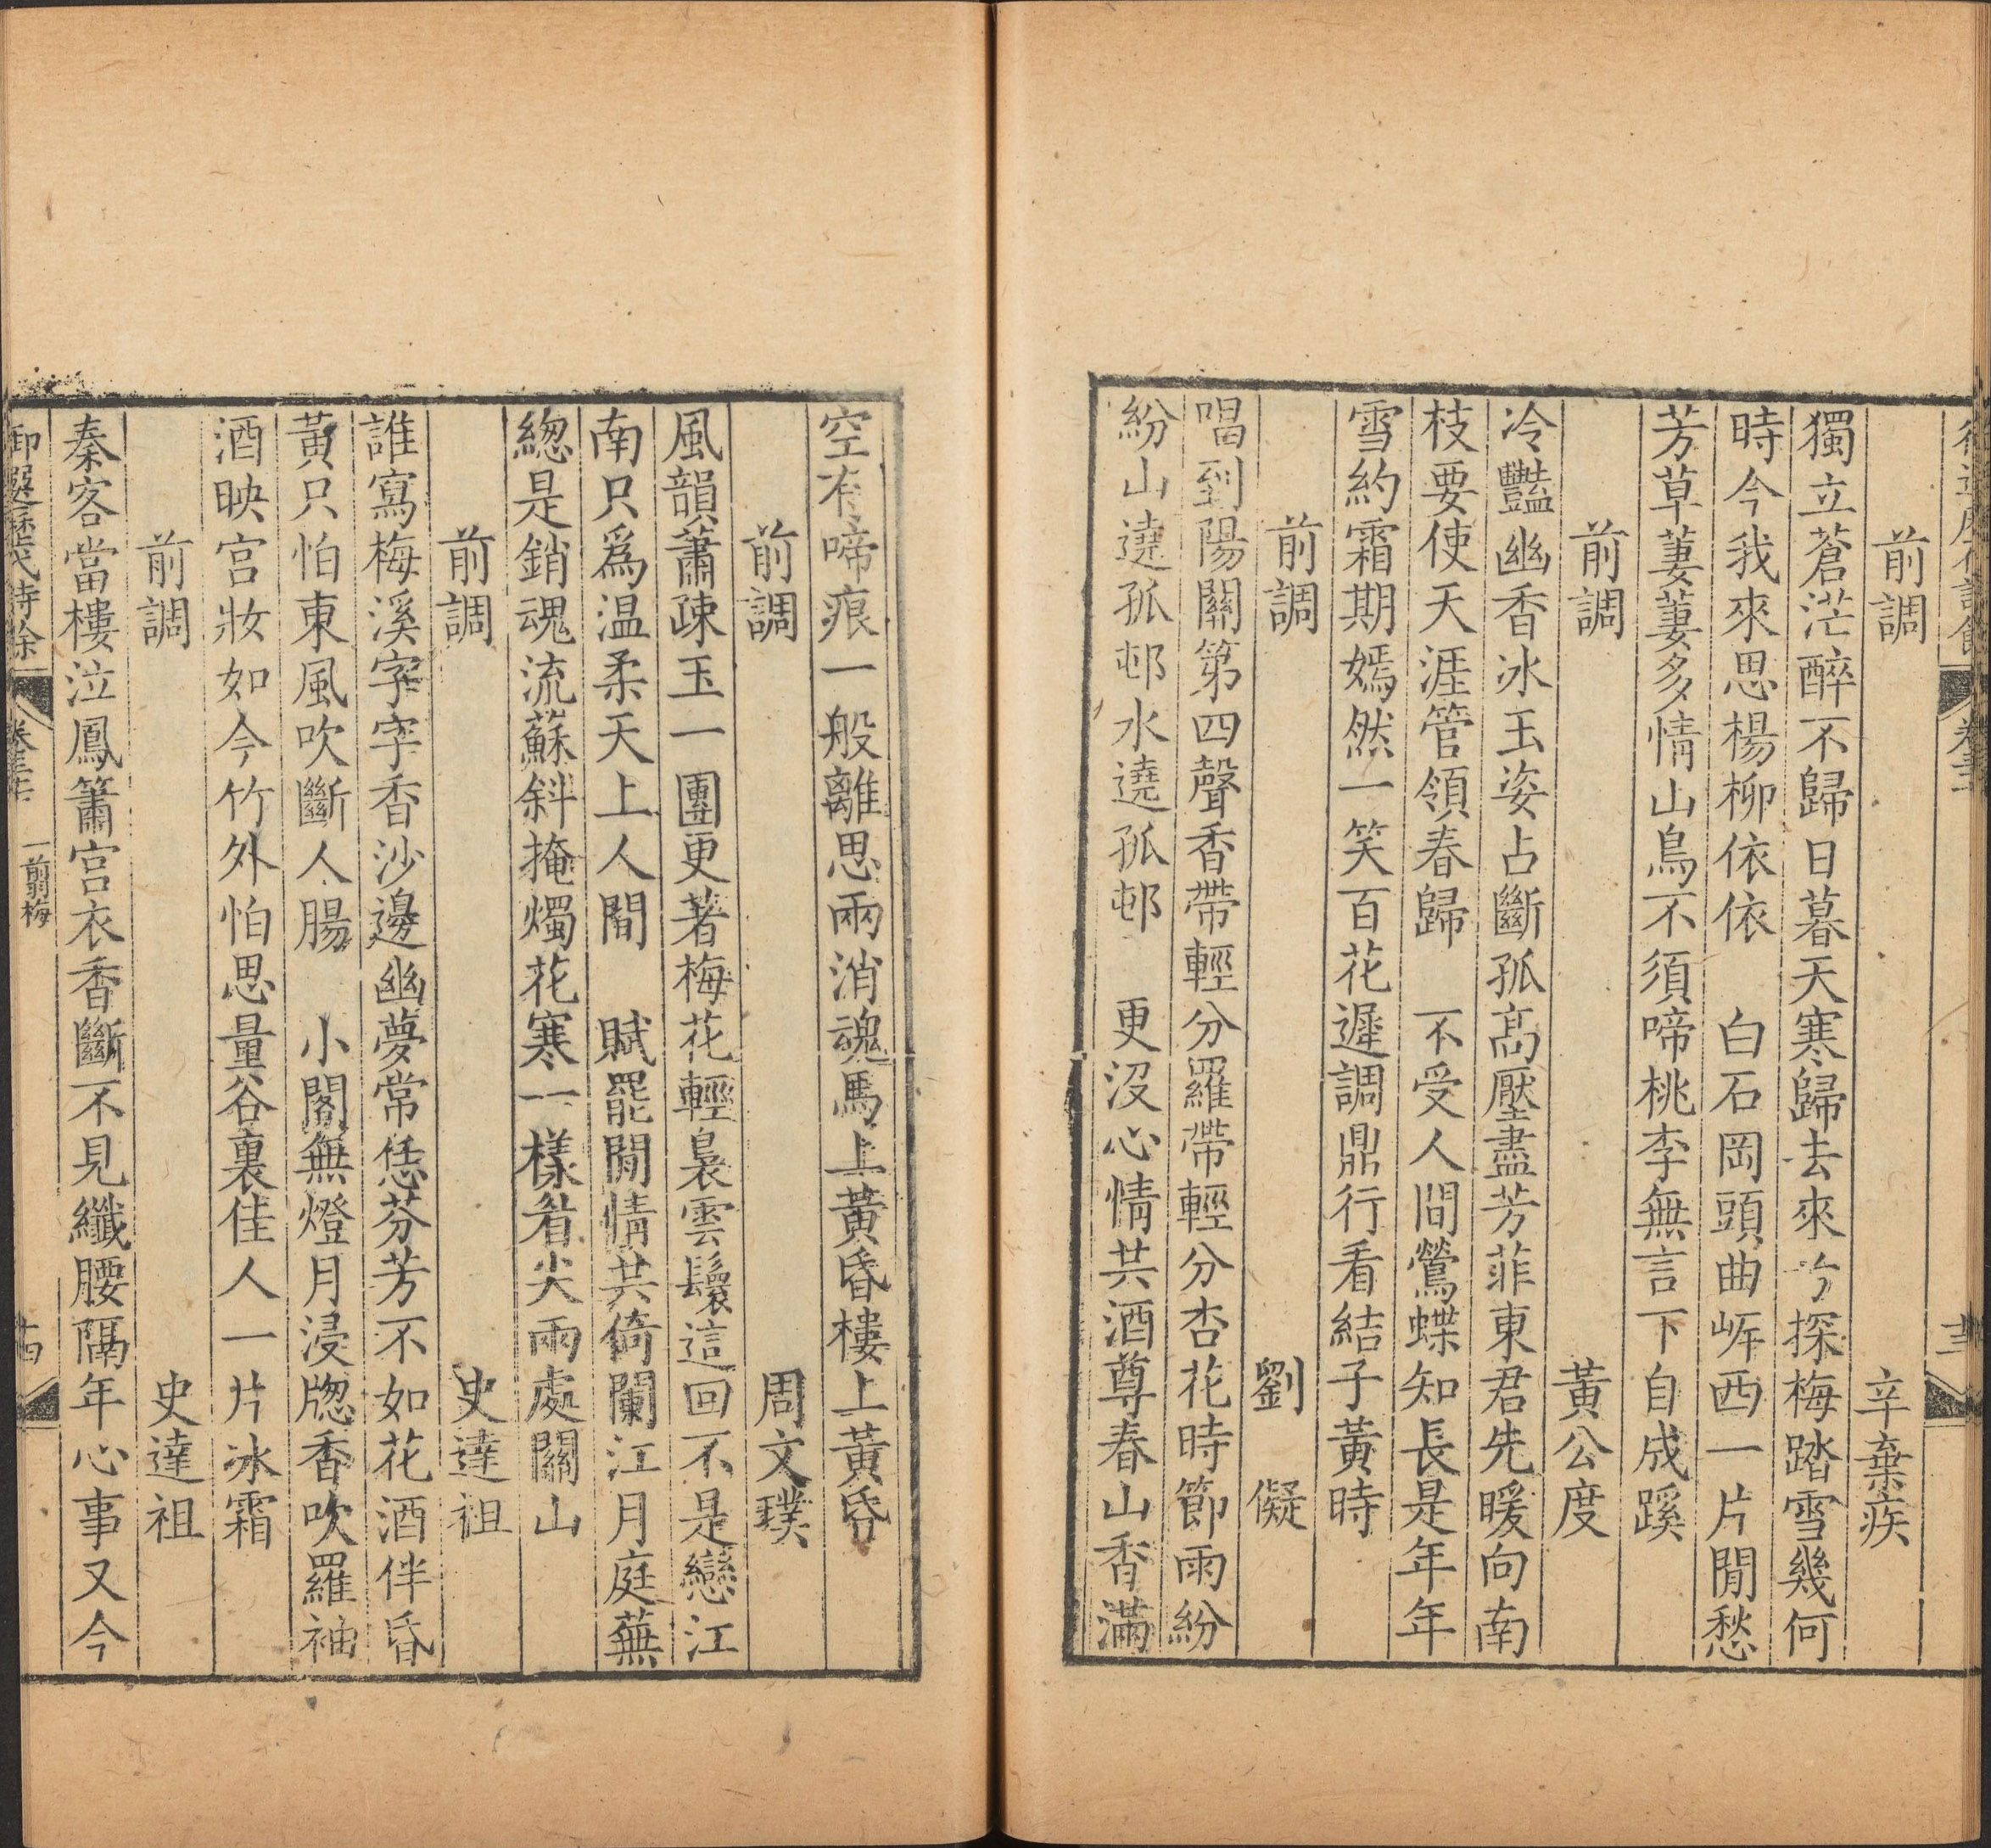 前調　辛棄疾
獨立蒼茫醉不歸日暮天寒歸去來兮探梅踏雪幾何
時今我來思楊柳依依　白石岡頭曲岸西一片閒愁
芳草萋萋多情山鳥不須啼桃李無言下自成蹊
前調　黃公度
冷豔幽香冰玉姿占斷孤高壓盡芳菲東君先暖向南
枝要使天涯管領春歸　不受人間鶯蝶知長是年年
雪約霜期嫣然一笑百花遲調鼎行看結子黃時
前調　劉　儗
唱到陽關第四聲香帶輕分羅帶輕分杏花時節雨紛
紛山遶孤邨水遶孤邨　更沒心情共酒尊春山香滿
空有啼痕一般離思兩消魂馬上黃昏樓上黃昏
前調　周文璞
風韻蕭疎玉一團更著梅花輕裊雲鬟這回不是戀江
南只爲温柔天上人間　賦罷閒情共倚闌江月庭蕪
總是銷魂流蘇斜掩燭花寒一樣眉尖兩處關山
前調　史達祖
誰寫梅溪字字香沙邊幽夢常恁芬芳不如花酒伴昏
黃只怕東風吹斷人腸　小閣無燈月浸牕香吹羅袖
酒映宮妝如今竹外怕思量谷裏佳人一片冰霜
前調　史達祖
秦客當樓泣鳳簫宮衣香斷不見纖腰隔年心事又今
御選歷代詩餘　卷三十　一剪梅　十四